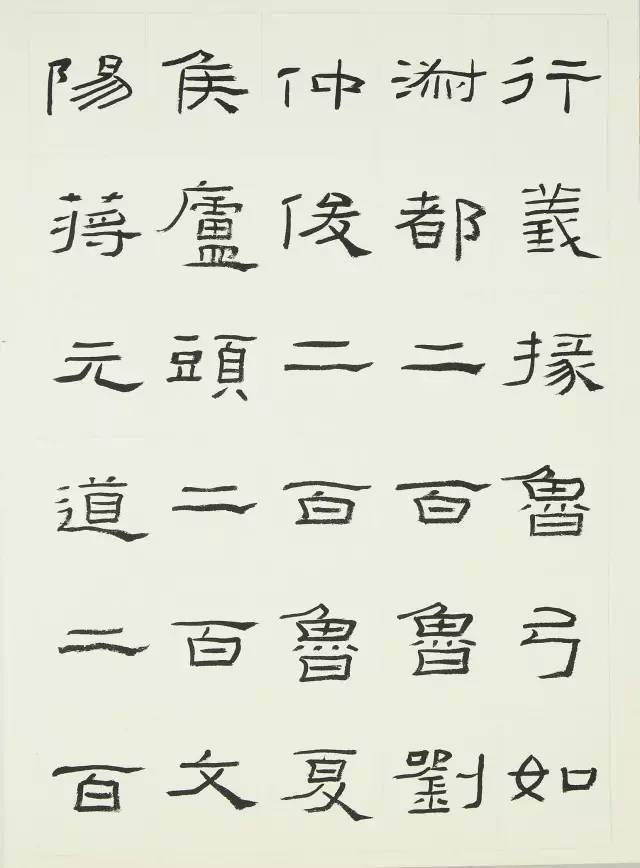 行義掾魯弓如
叔都二百魯劉
仲俊二百魯夏
侯廬頭二百文
陽蔣元道二百